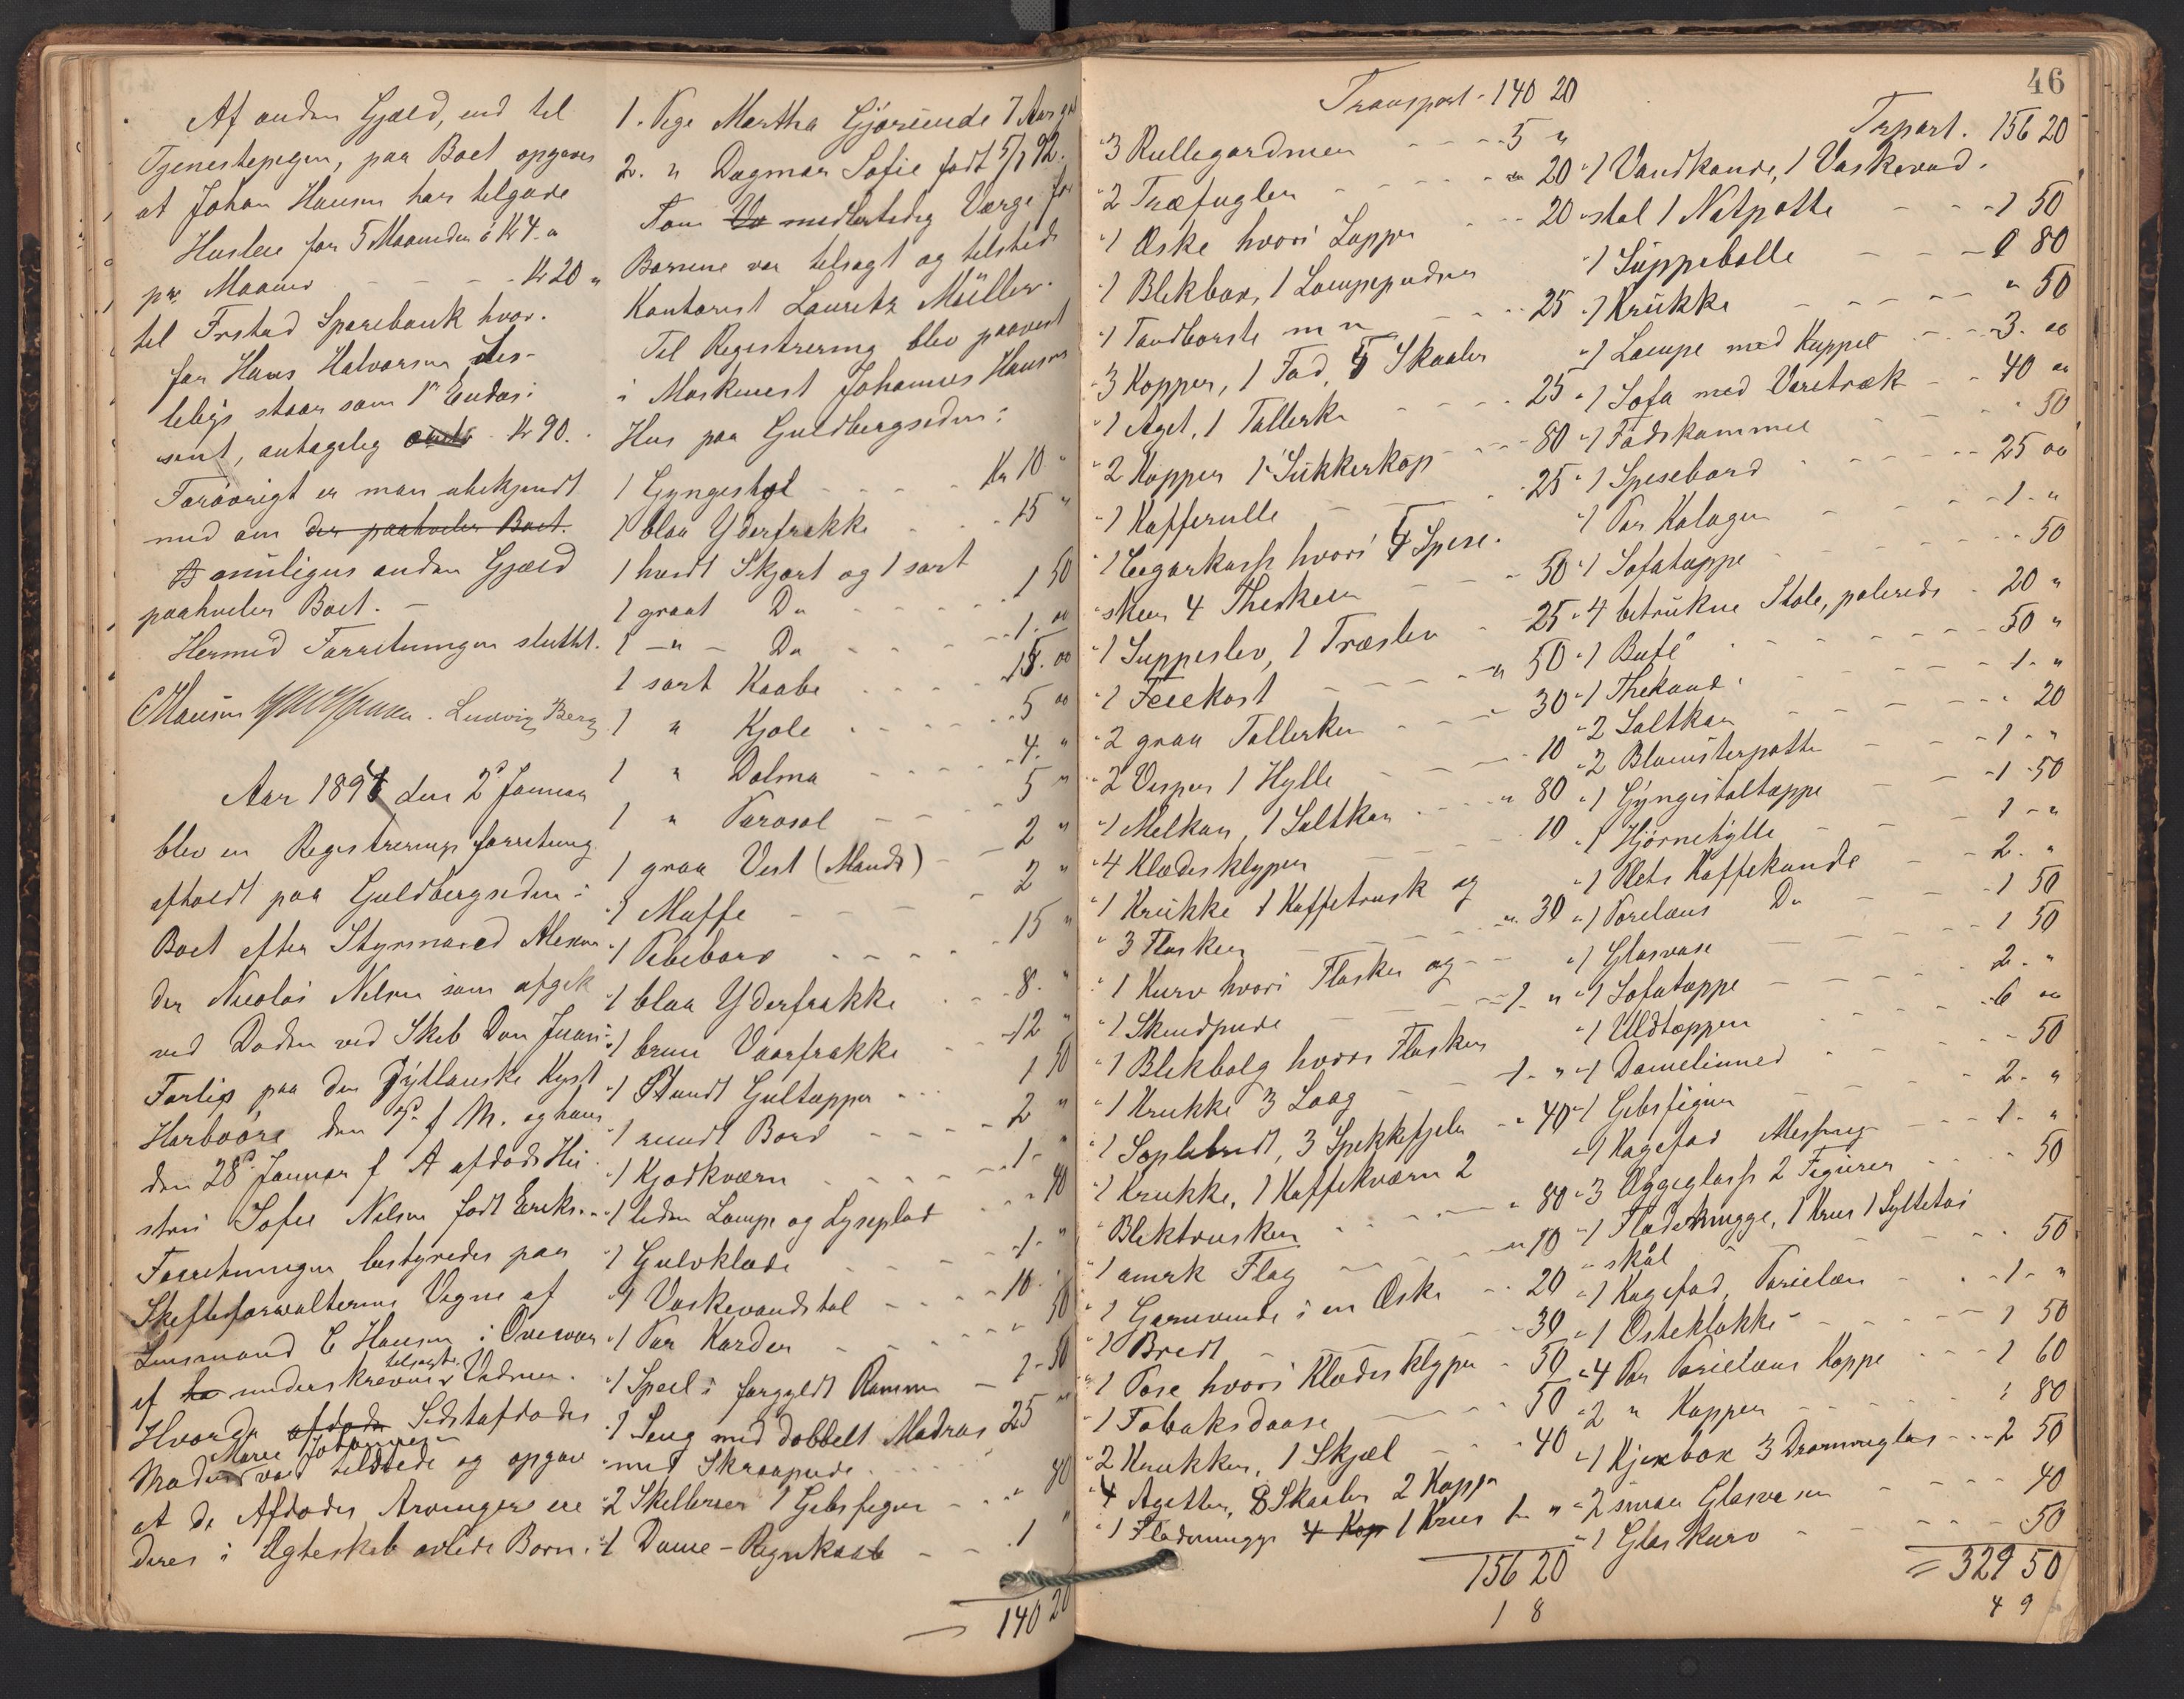 Af anden Gjæld, end til
Tjenestepigen, paa Boet opgaves
at Johan Hansen har tilgode
Husleie for 5 Maaneder á Kr 4 "
pr. Maaned - - - Kr 20 "
til Frstad Sparebank hvor-
for Hans Halvorsen
staar som 1ste Endos-
sent, antagelig Kr 90.
Forøvrigt er man ubekjendt
med om der paahviler Boet
muligens anden Gjæld
paahviler Boet. -
Hermed Forretningen sluttet.
CHansen Ludvig Berg
Aar 1894 den 2d Januar
blev en Registreringsforretning
afholdt paa Guldbergsiden i
Boet efter Styrmand Alexan
der Nicolai Nilsen som afgik
ved Døden ved Skib Don Juans
Forlis paa den Jyllanske Kyst
Harboøre den f M. og hans
den 28de Januar f A afdøde Hu
stru Sofie Nilsen født Eriks.
Forretningen bestyredes paa
Skifteforvalterens Vegne af
Lensmand C Hansen i Overvær
af tilsagte
underskrevne Vidner.
Hvorda afdøde Sidstafdødes
Marie Johannesen
Moder var tilstede og opgav
at de Afdødes Arvinger ere
deres i Ægteskab avlede Børn.
1. Pige Martha Gjørinde 7 Aar gl
2. " Dagmar Sofie født 5/7 92.
Som Va midlertidig Værge for
Børnene var tilsagt og tilstede
Kontorist Lauritz Müller.
Til Registrering blev paavist
i Maskinist Johannes Hansens
Hus paa Guldbergsiden:
1 Gyngestol - - - Kr 10 "
1 blaa Yderfrakke - - 15 "
1 hvidt Skjørt og 1 sort
1 graat Do - - - 1 50
1 - " - Do - - - 1. 00
1 sort Kaabe - - - 15. 00
1 " Kjole - - - 5 00
1 " Dolma - - - 4. "
1 " Parasol - - - 5 "
1 graa Vest (Mands) - 2 "
1 Muffe - - - 2 "
1 Pibebord - - - 15 "
1 blaa Yderfrakke - - 8. "
1 brun Vaarfrakke - - 12 "
1 Rundt Gultæppe - - 1 50
1 rundt Bord - - - 2 "
1 Kjødkværn - - - 1 - "
1 liden Lampe og Lyseplad - " 40
1 Gulvklæde - - - 1- "
1 Vaskevandstol - - - 10.
1 Par Karder - - - " 50
1 Speil i forgyldt Ramme - 1-50
1 Seng med dobbelt Madras 25 "
med Skraapude
2 Skillerier 1 Gibsfigur - - " 40
1 Dame-Regnkaab - - 1 "
140 20
46
Transport - 140 20
3 Rullegardiner - - - 5 "
2 Træfugler - - - " 20
1 Æske hvori Lapper - - 20
1 Blikbox, 1 Lampepudser
1 Tandbørste m n - - - 25
3 Kopper, 1 Fad, 5 Skaaler
1 Aget, 1 Tallerken - - - 25
2 Kopper 1 Sukkerkop - - - 80
1 Kafferulle - - - 25
1 Cigarkasse hvori 4 Spise-
skeer 4 Theskeer - - - 50
1 Suppeslev, 1 Træslev - 25
1 Feiekost - - - " 50
2 graa Tallerken - - - 30
2 Visper 1 Hylle - - - 10
1 Melkan, 1 Saltkar - - " 80
4 Klædesklyper - - - 10
1 Krukke 1 Kaffetrusk og
3 Flasker - - - " 30
1 Kurv hvori Flasker og - -
1 Skindpude - - - 1 "
1 Blikbalg hvori Flasker
1 Krukke 3 Laag - - 1 - "
1 Soplebret, 3 Spekkefjeler - " 40
1 Krukke, 1 Kaffekværn 2
Bliktrusken - - - " 80
1 amrk Flag - - - " 10
1 Garnvinde i en Æske - - 20
1 Bredt - - - 30
1 Pose hvori Klædesklyper - 50
1 Tobaksdaase - - - 50
2 Krukker, 1 Skjæl - - - 40
4 Agetter, 8 Skaaler 2 Kopper
1 Flødemugge 4 Kop 1 Krus 1 "
156 20
1 8
Trport. 156 20
1 Vandkande, 1 Vaskevand-
stel 1 Natpotte - - - 1 50
1 Suppebolle - - - 0 80
1 Krukke - - - " 50
1 Lampe med Kuppel - - 3. 00
1 Sofa med Varetræk - - 40 00
1 Fadskammel - - - 50
1 Spisebord - - - 25 00
1 Par Kalager - - - 1. "
1 Sofatæppe - - - 50
4 betrukne Stole, polerede - 20 "
1 Bufé - - - 50 "
1 Thekande - - - 1. "
2 Saltkar - - - 20
2 Blomsterpotter - - 1 - "
1 Gyngestoltæppe - - 1 - 50
1 Hjørnehylle - - - 1 - "
1 Plets Kaffekande - - 2. "
1 Porslæns Do - - - 1 50
1 Glasvase - - - 1 50
1 Sofatæppe - - - 2. "
1 Uldtæppen - - - 6 00
1 Damelinned - - - 50
1 Gibsfigur - - - 2. "
1 Kagefad Messing - - 1- "
3 Æggeglass 2 Figurer - - 50
1 Flødemugge, 1 Krus 1 Syltetøi
skål - - - 50
1 Kagefad, Porselæn - - 1- "
1 Osteklokke - - - 1 50
4 Par Porselæns Koppe - - 1 60
2 " Kopper - - - 1 80
1 Kjexbox 3 Drammeglas - - 2 50
2 smaa Glasvaser - - - 40
1 Glaskurv - - - 50
= 329 50
4 9